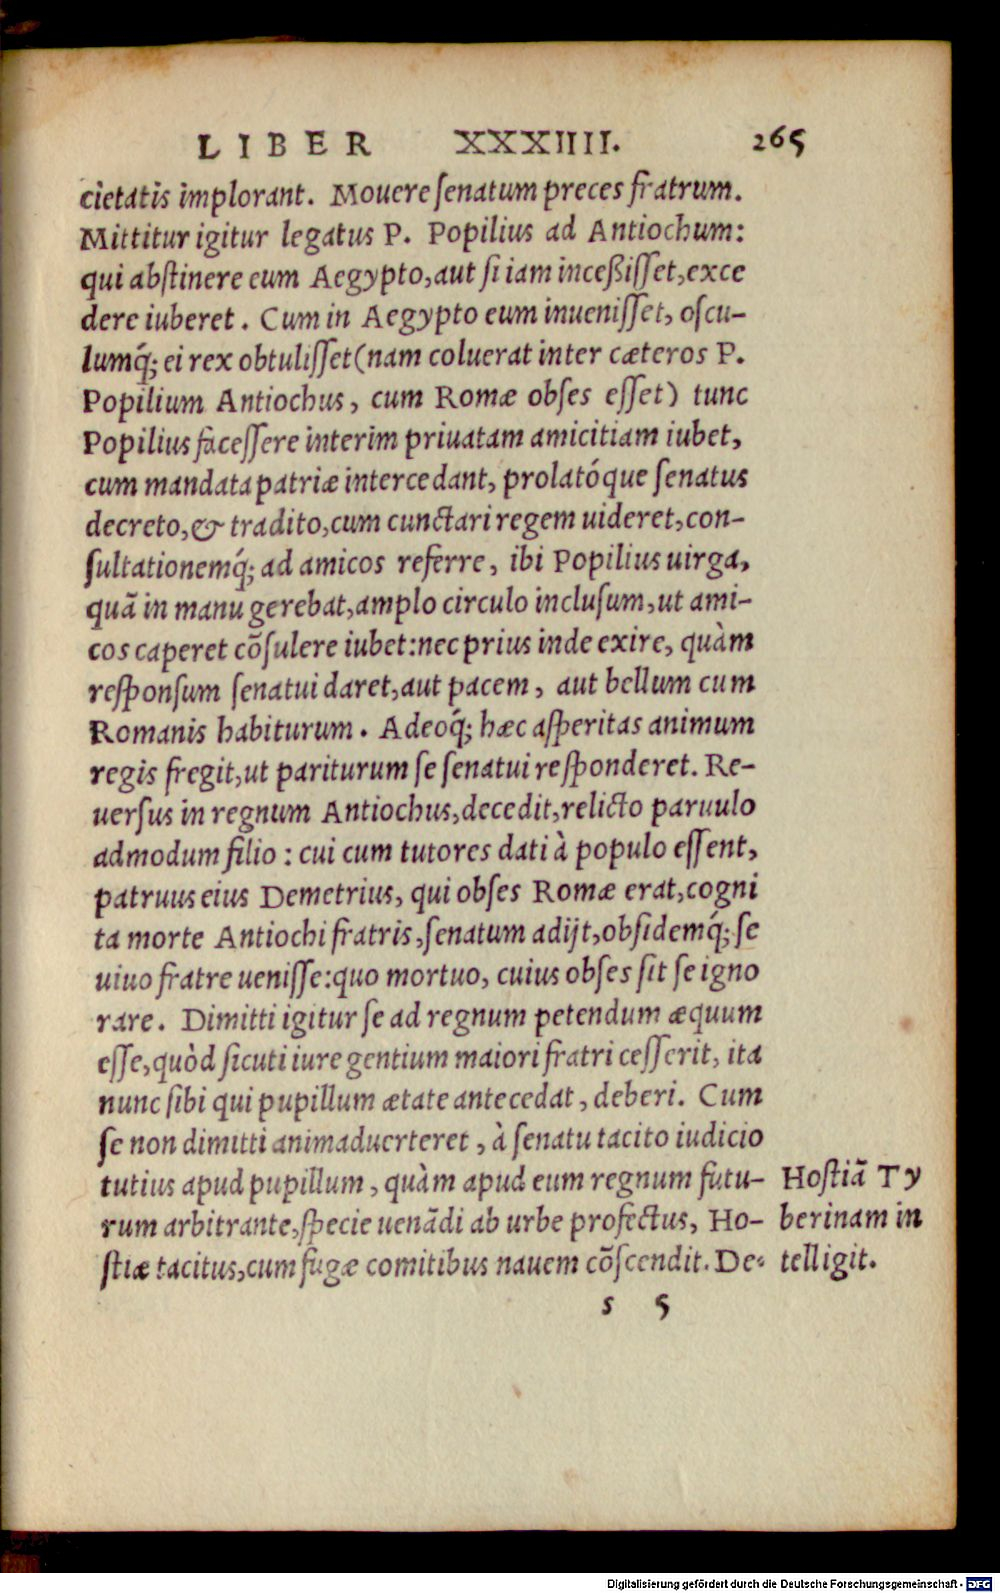 LIBER XXXIIII. 265
cietatis implorant. Mouere ſenatum preces fratrum.
Mittitur igitur legatus P. Popilius ad Antiochum:
qui abſtinere eum Aegypto, aut ſi iam inceßiſſet, exce
dere iuberet. Cum in Aegypto eum inueniſſet, oſcu-
lumq́; ei rex obtuliſſet (nam coluerat inter cæteros P.
Popilium Antiochus, cum Romæ obſes eſſet) tunc
Popilius faceſſere interim priuatam amicitiam iubet,
cum mandata patriæ intercedant, prolatóque ſenatus
decreto, & tradito, cum cunctari regem uideret, con-
ſultationemq́; ad amicos referre, ibi Popilius uirga,
quã in manu gerebat, amplo circulo incluſum, ut ami-
cos caperet cõſulere iubet: nec prius inde exire, quàm
reſponſum ſenatui daret, aut pacem, aut bellum cum
Romanis habiturum. Adeoq́; hæc aſperitas animum
regis fregit, ut pariturum ſe ſenatui reſponderet. Re-
uerſus in regnum Antiochus, decedit, relicto paruulo
admodum filio: cui cum tutores dati à populo eſſent,
patruus eius Demetrius, qui obſes Romæ erat, cogni
ta morte Antiochi fratris, ſenatum adijt, obſidemq́; ſe
uiuo fratre ueniſſe: quo mortuo, cuius obſes ſit ſe igno
rare. Dimitti igitur ſe ad regnum petendum æquum
eſſe, quòd ſicuti iure gentium maiori fratri ceſſerit, ita
nunc ſibi qui pupillum ætate antecedat, deberi. Cum
ſe non dimitti animaduerteret, à ſenatu tacito iudicio
tutius apud pupillum, quàm apud eum regnum futu-
rum arbitrante, ſpecie uenãdi ab urbe profectus, Ho-
ſtiæ tacitus, cum fugæ comitibus nauem cõſcendit. De-
Hoſtiã Ty
berinam in
telligit.
s 5
Digitalisierung gefördert durch die Deutsche Forschungsgemeinschaft - DFG